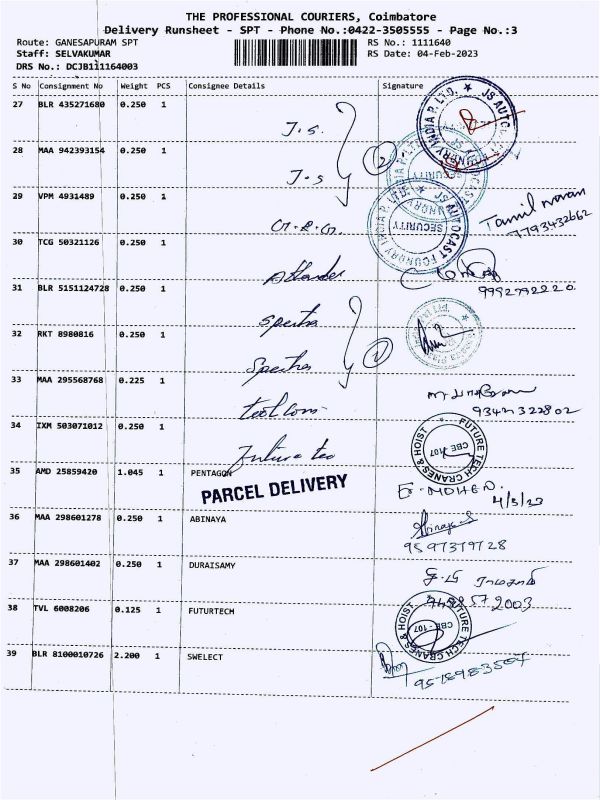 THE PROFESSIONAL COURIERS, Coimbatore
Delivery Runsheet - SPT - Phone No.:0422-3505555 - Page No.:3
Route: GANESAPURAM SPT RS No.: 1111640
Staff: SELVAKUMAR RS Date: 04-Feb-2023
DRS No.: DCJB111164003
S No Consignment No Weight PCS Consignee Details Signature
27 BLR 435271680 0.250 1 J.S.
28 MAA 942393154 0.250 1 J.S
2
JS AUTOCAST FOUNDRY INDIA P. LTD.
SECURITY
JS AUTOCAST FOUNDRY INDIA P. LTD.
SECURITY
29 VPM 4931489 0.250 1
Tamil
7793432662
30 TCG 50321126 0.250 1
31 BLR 5151124728 0.250 1 Spectra
9992792220
32 RKT 8980816 0.250 1 Spectra
1
33 MAA 295568768 0.225 1
9342322802
34 IXM 503071012 0.250 1 Future tec
FUTURE TECH CRANES & HOIST
CBE - 107
35 AMD 25859420 1.045 1 PENTAGON
PARCEL DELIVERY
MOHEN.
36 MAA 298601278 0.250 1 ABINAYA
9597379728
37 MAA 298601402 0.250 1 DURAISAMY
38 TVL 6008206 0.125 1 FUTURTECH
FUTURE TECH CRANES & HOIST
CBE - 107
39 BLR 8100010726 2.200 1 SWELECT